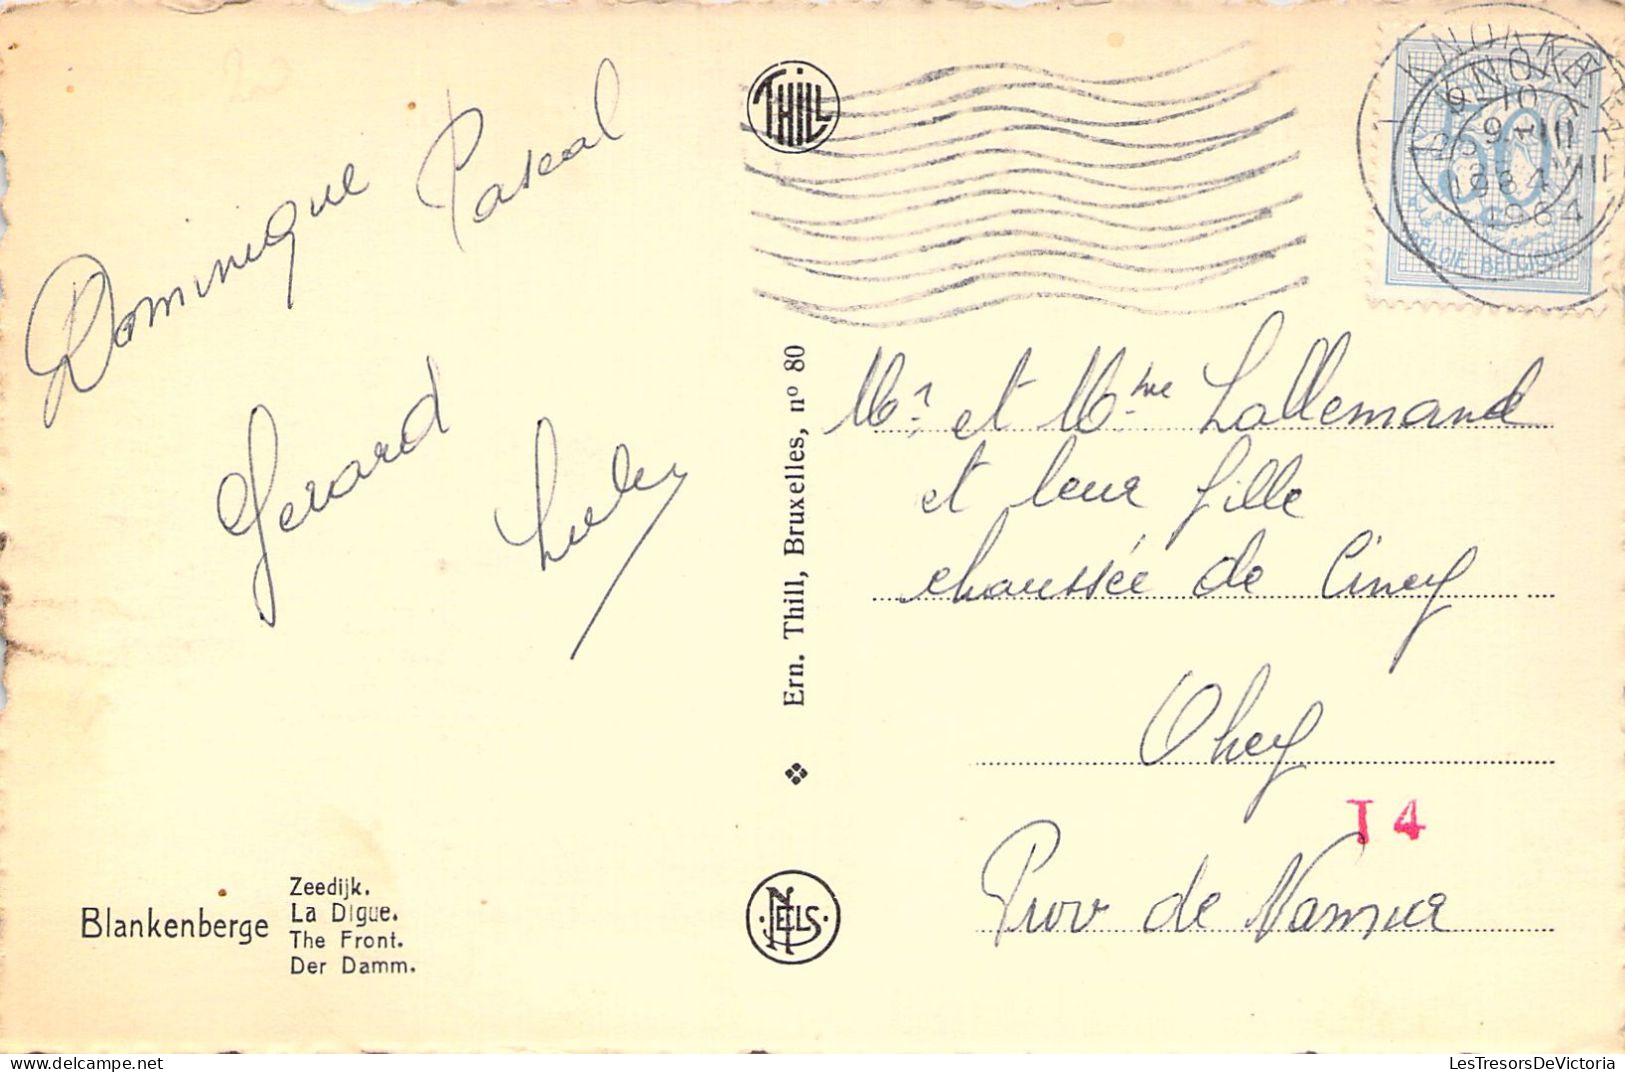 Dominique
Pascal
Gerard
THILL
KNOKKE
1964
50
BELGIË BELGIQUE
Mr. et Mme Lallemand
et leur fille
chaussée de Ciney
Ohey
T4
Prov de Namur
Ern. Thill, Bruxelles, nº 80
NELS
Blankenberge
Zeedijk.
La Digue.
The Front.
Der Damm.
LesTresorsDeVictoria
www.delcampe.net